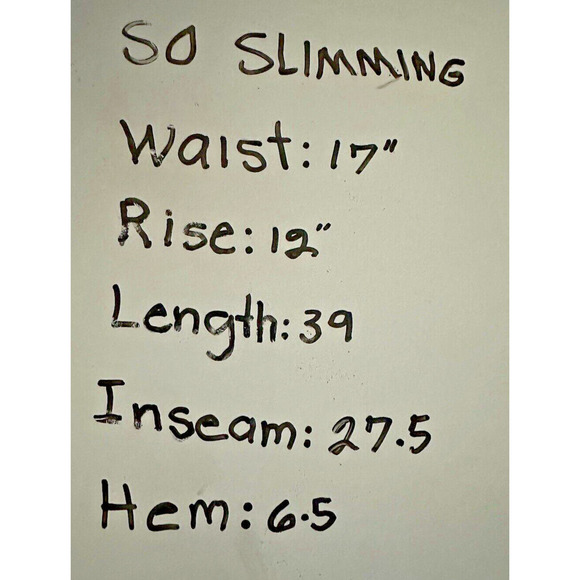 SO SLIMMING
Waist: 17"
Rise: 12"
Length: 39
Inseam: 27.5
Hem: 6.5